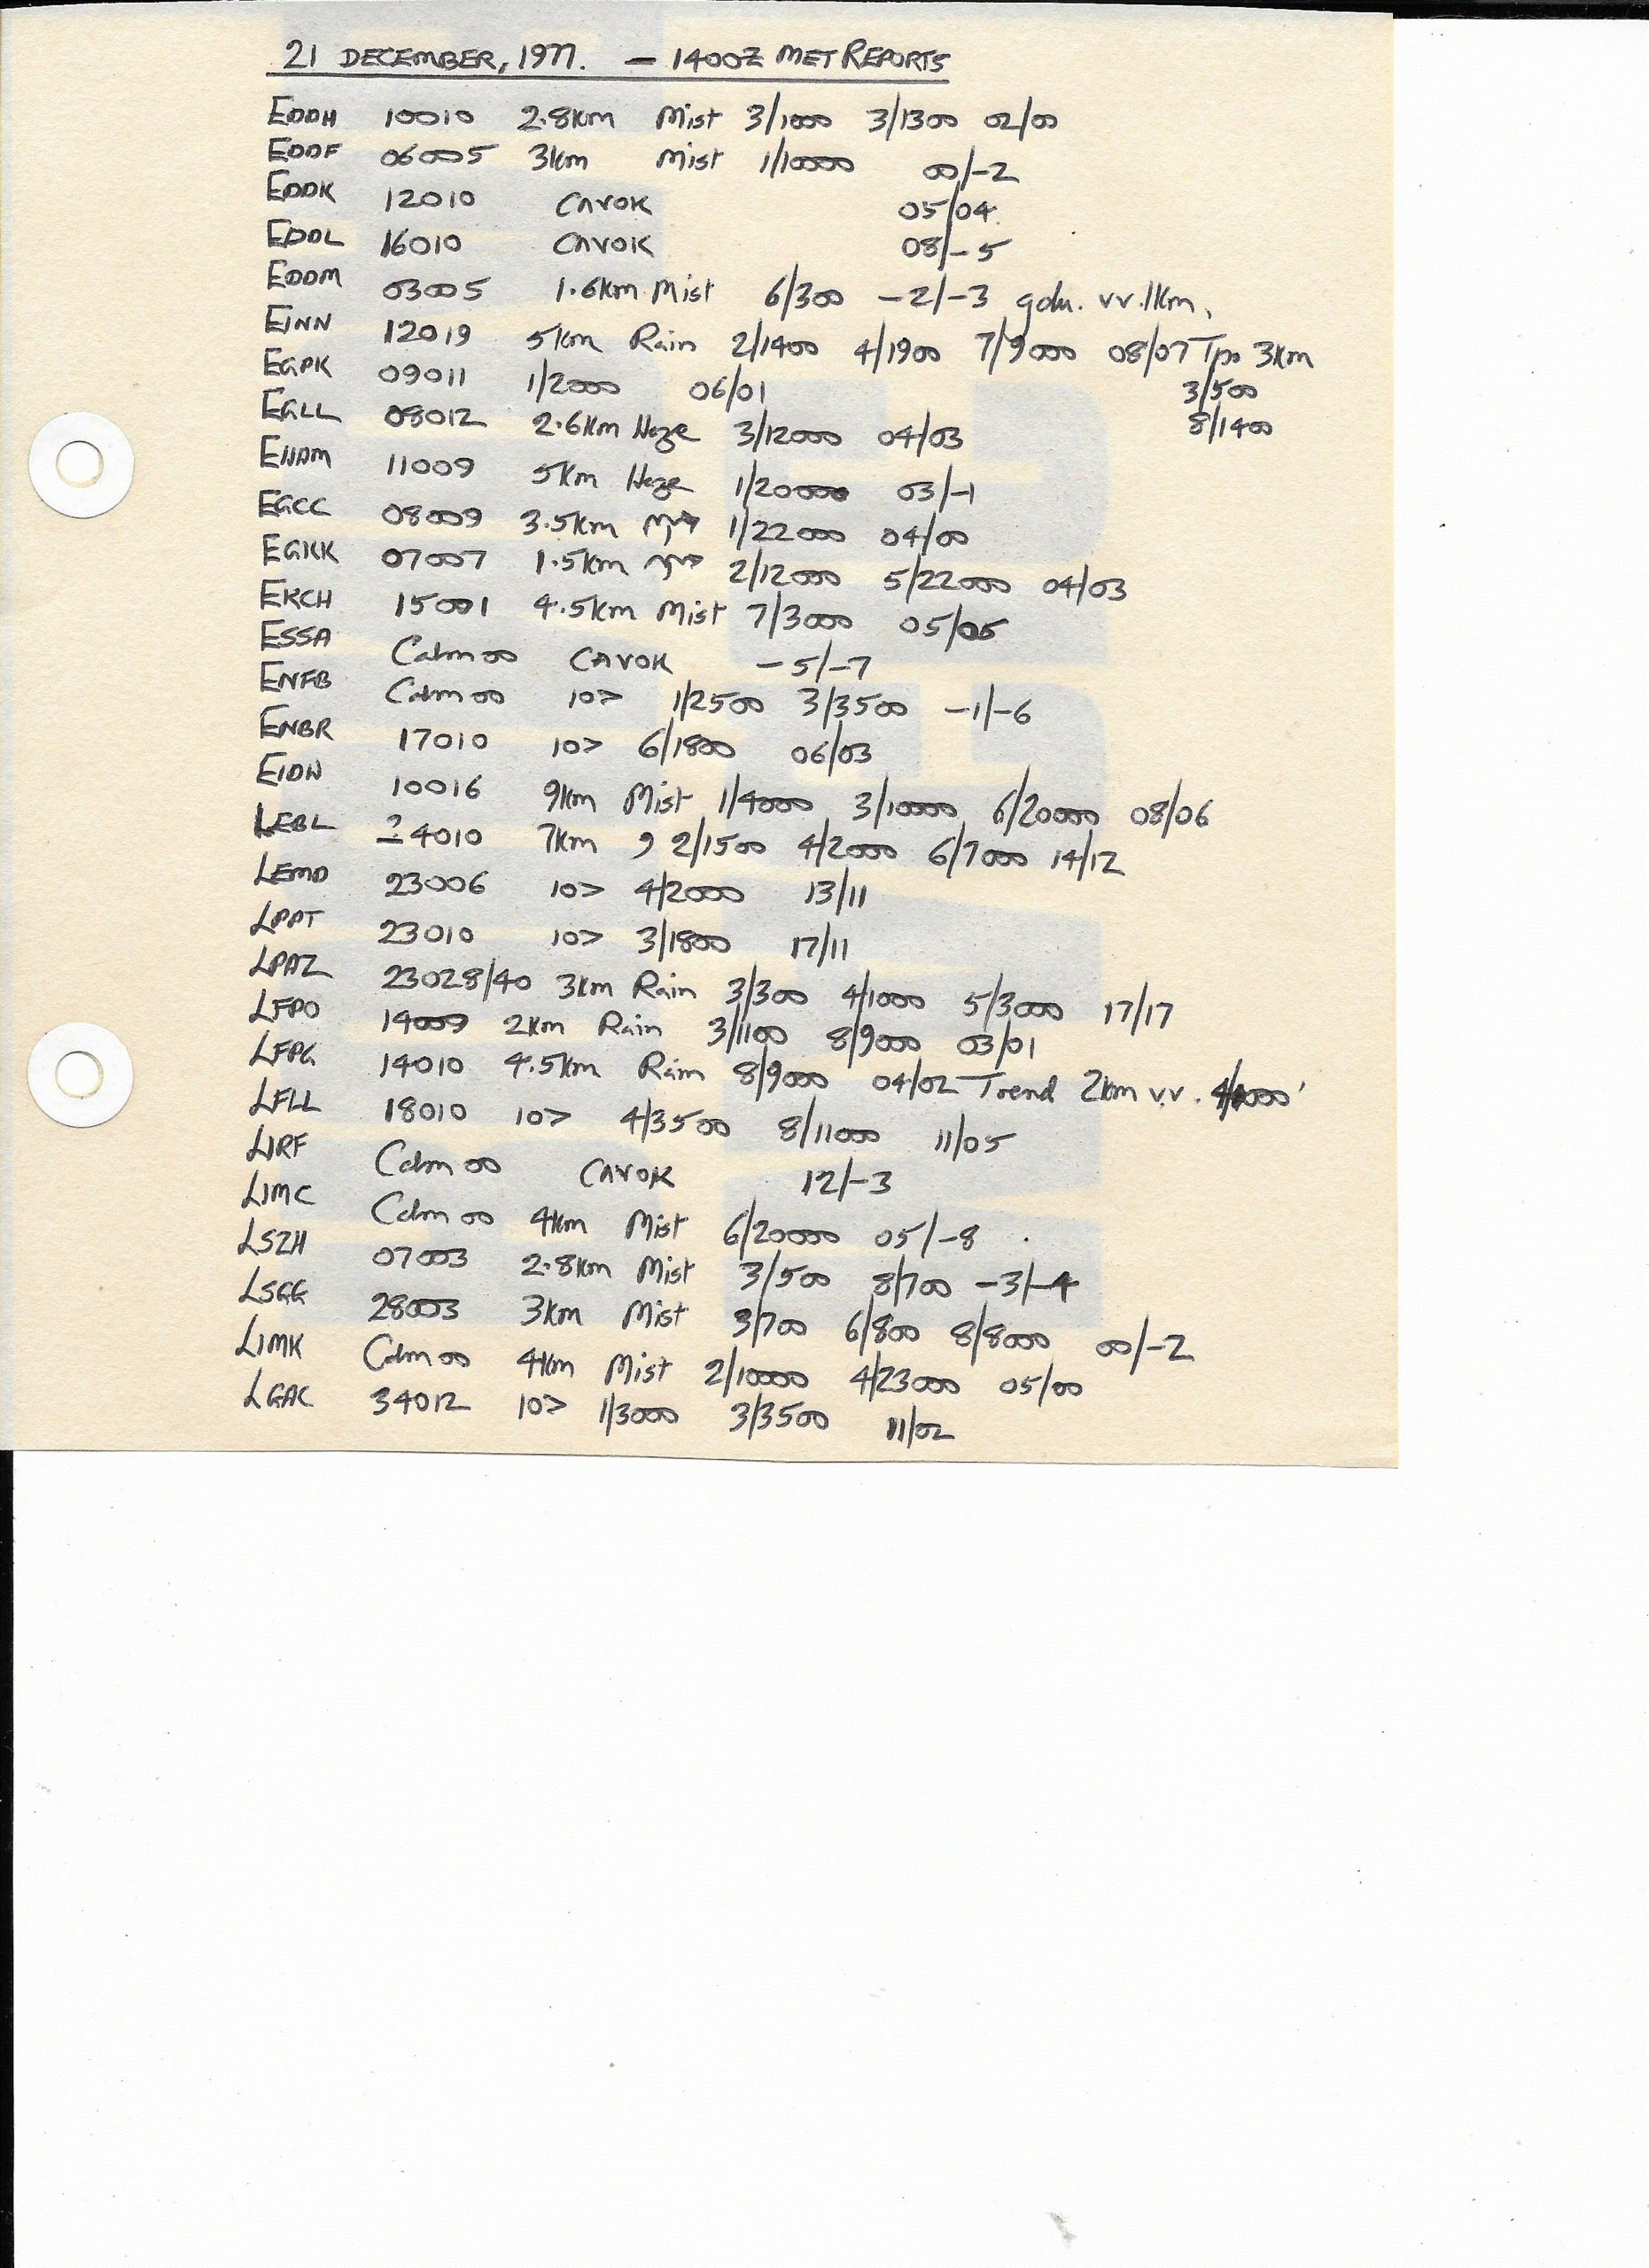 21 DECEMBER, 1977. — 1400Z MET REPORTS
EDDH 10010 2.8km Mist 3/1000 3/1300 02/00
EDDF 06005 3km Mist 1/10000 00/-2
EDDK 12010 CAVOK 05/04
EDDL 16010 CAVOK 08/-5
EDDM 03005 1.6km Mist 6/300 -2/-3 gdu. vv.1km.
EINN 12019 5km Rain 2/1400 4/1900 7/9000 08/07 Tpo 3km
EGPK 09011 1/2000 06/01 3/500
EGLL 08012 2.6km Haze 3/12000 04/03 8/1400
EHAM 11009 5km Haze 1/20000 03/-1
EGCC 08009 3.5km 1/22000 04/00
EGKK 07007 1.5km 2/12000 5/22000 04/03
EKCH 15001 4.5km Mist 7/3000 05/05
ESSA Calm 00 CAVOK -5/-7
ENFB Calm 00 10> 1/2500 3/3500 -1/-6
ENBR 17010 10> 6/1800 06/03
EIDW 10016 9km Mist 1/4000 3/10000 6/20000 08/06
LEBL 24010 7km , 2/1500 4/2000 6/7000 14/12
LEMD 23006 10> 4/2000 13/11
LPPT 23010 10> 3/1800 17/11
LPAZ 23028/40 3km Rain 3/300 4/1000 5/3000 17/17
LFPO 14009 2km Rain 3/1100 8/9000 03/01
LFPG 14010 4.5km Rain 8/9000 04/02 Trend 2km v.v.
LFLL 18010 10> 4/3500 8/11000 11/05
LIRF Calm 00 CAVOK 12/-3
LIMC Calm 00 4km Mist 6/20000 05/-8
LSZH 07003 2.8km Mist 3/500 8/700 -3/-4
LSGG 28003 3km Mist 3/700 6/800 8/8000 00/-2
LIMK Calm 00 4km Mist 2/10000 4/23000 05/00
LGAC 34012 10> 1/3000 3/3500 11/02